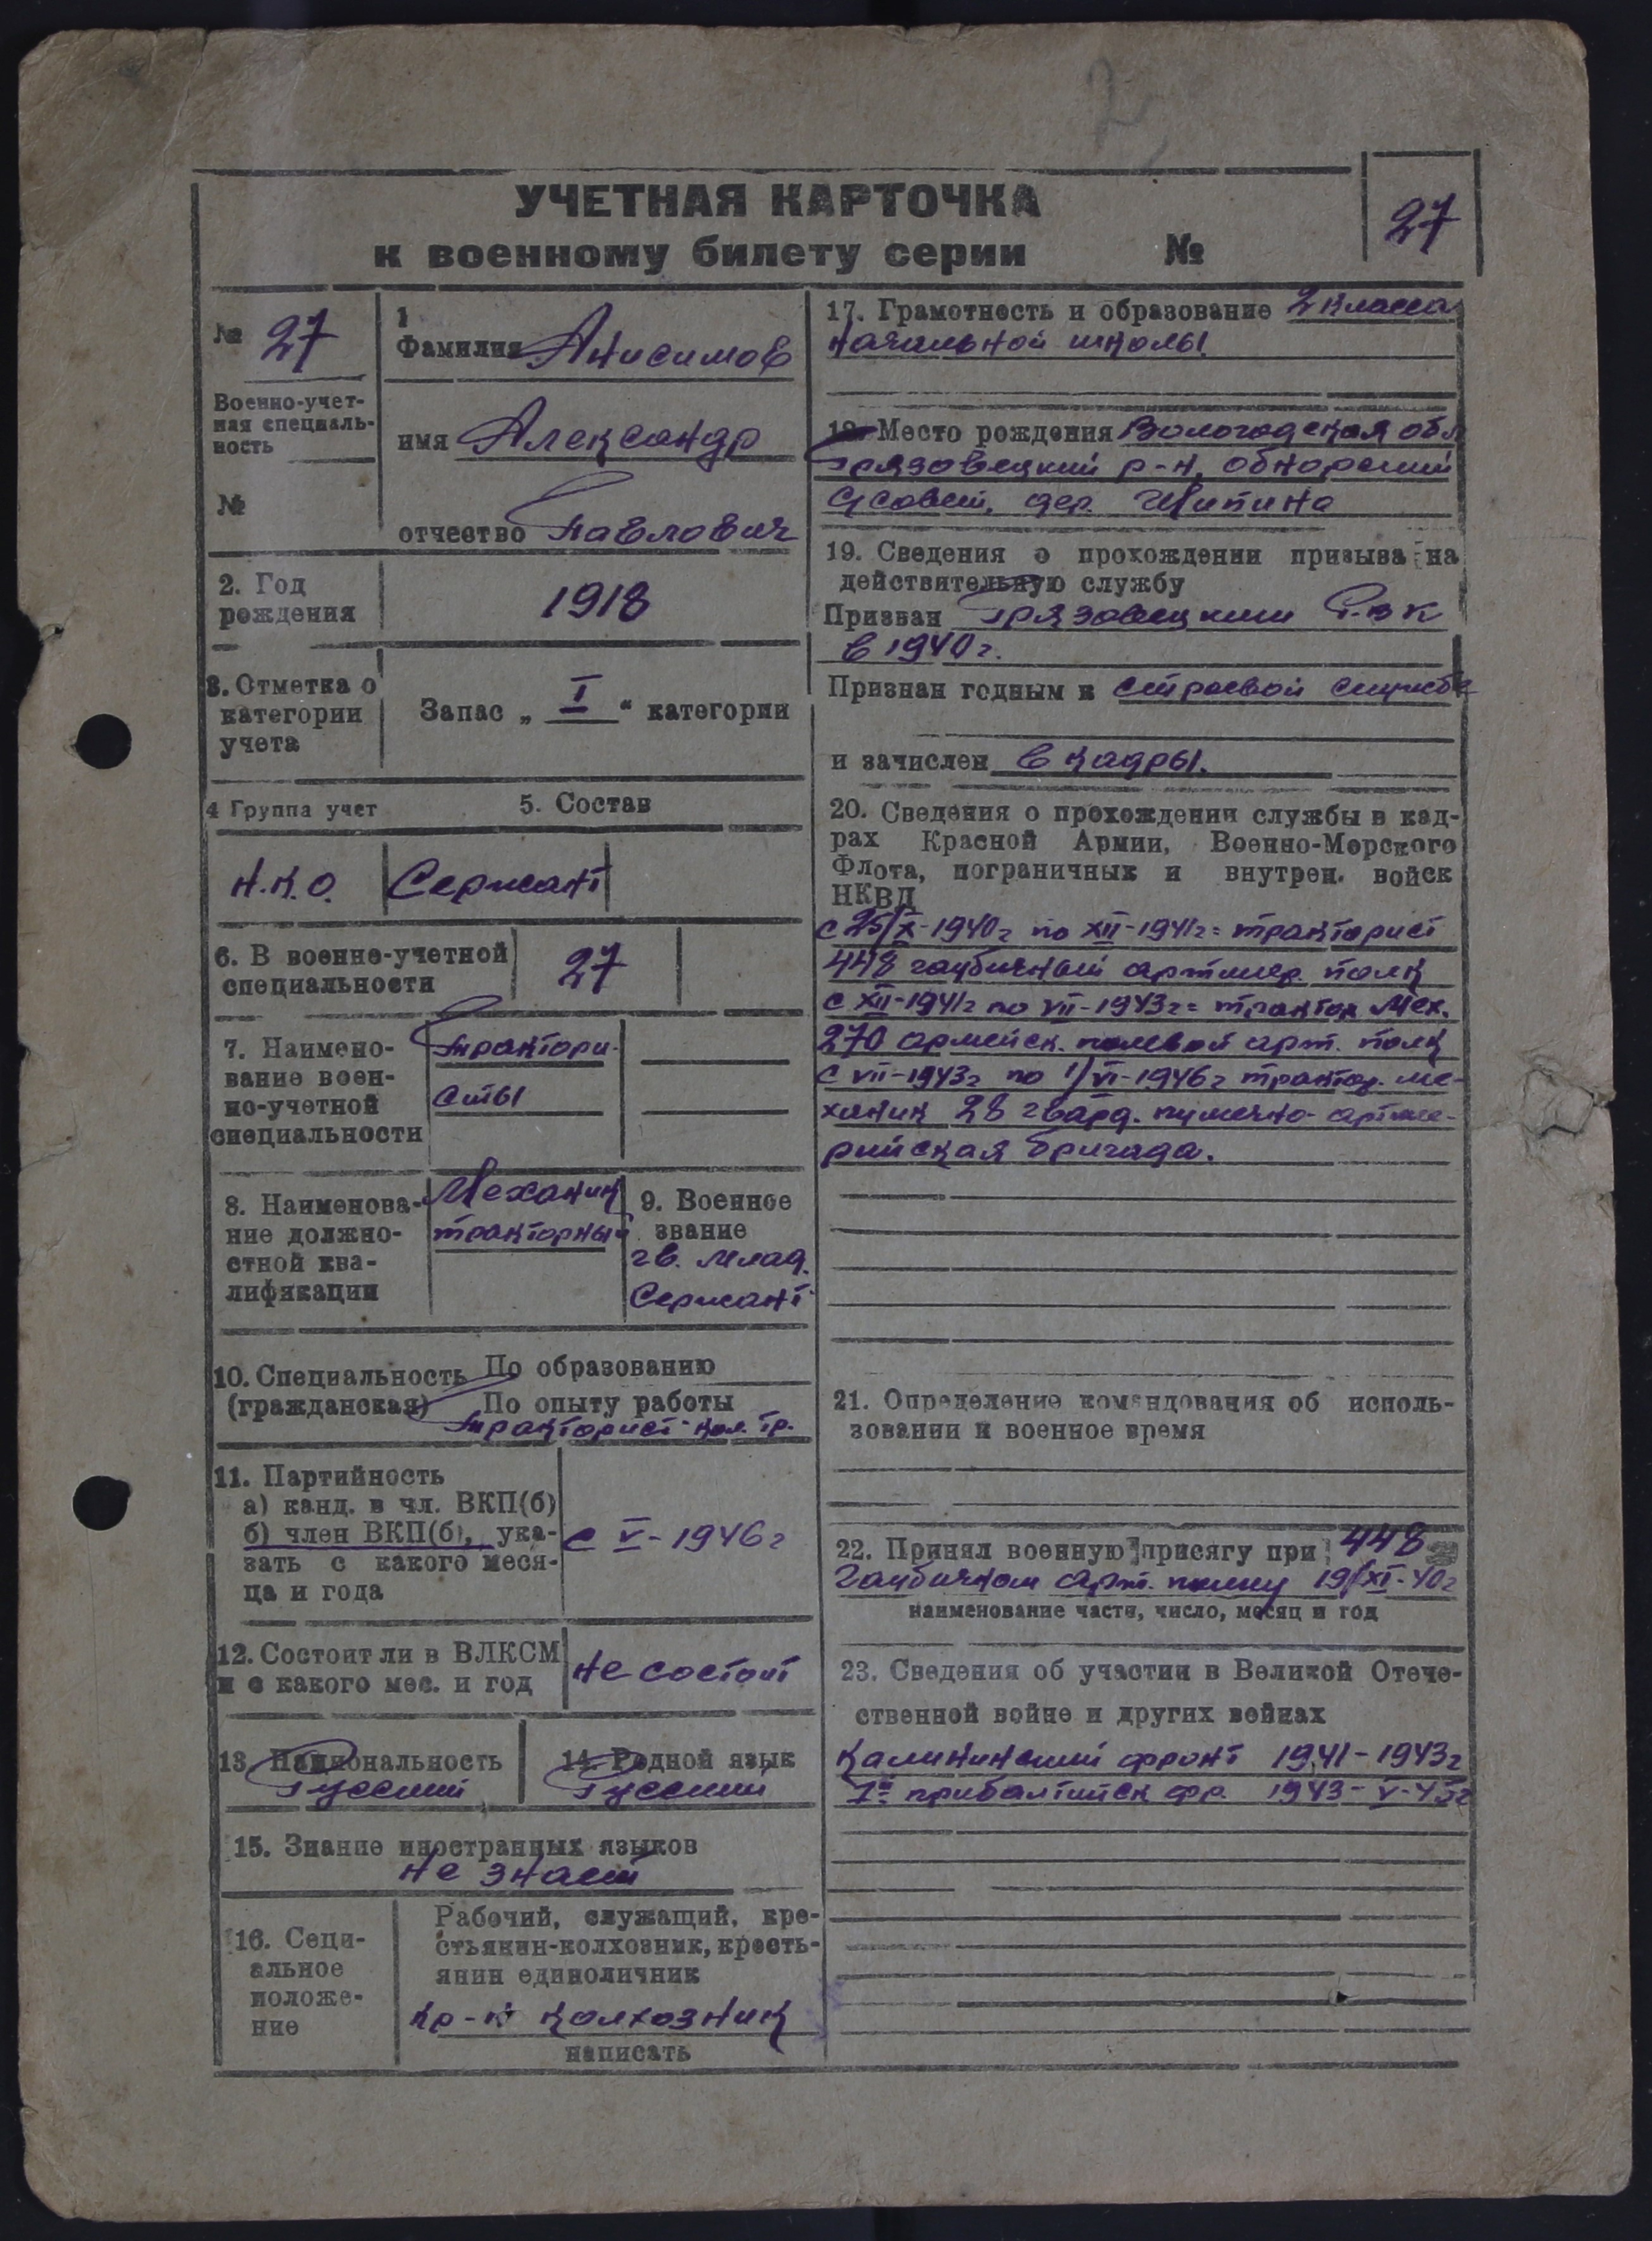 2
УЧЕТНАЯ КАРТОЧКА
к военному билету серии №
27
№ 27
Военно-учет-
ная специаль-
ность
№
1
Фамилия Анисимов
имя Александр
отчество Павлович
2. Год
рождения
1918
3. Отметка о
категории
учета
Запас „ I “ категории
4 Группа учет
5. Состав
Н.К.О.
Сержант
6. В военно-учетной
специальности
27
7. Наимено-
вание воен-
но-учетной
специальности
Трактори-
сты
8. Наименова-
ние должно-
стной ква-
лификации
Механик
тракторный
9. Военное
звание
гв. млад.
Сержант
10. Специальность
(гражданская)
По образованию
По опыту работы
Тракторист кол. тр.
11. Партийность
а) канд. в чл. ВКП(б)
б) член ВКП(б), ука-
зать с какого меся-
ца и года
с V-1946г
12. Состоит ли в ВЛКСМ
и с какого мес. и год
не состоит
13. Национальность
Русский
14. Родной язык
Русский
15. Знание иностранных языков
не знает
16. Соци-
альное
положе-
ние
Рабочий, служащий, кре-
стьянин-колхозник, кресть-
янин единоличник
кр-н колхозник
написать
17. Грамотность и образование 2 класса
начальной школы.
18. Место рождения Вологодская обл
Грязовецкий р-н, обнорский
с/совет, дер. Шипина
19. Сведения о прохождении призыва на
действительную службу
Призван Грязовецким Р.В.К
в 1940г.
Признан годным к строевой службе
и зачислен в кадры.
20. Сведения о прохождении службы в кад-
рах Красной Армии, Военно-Морского
Флота, пограничных и внутрен. войск
НКВД
с 25/X-1940г по XII-1941г = тракторист
448 гаубичный артилер. полк
с XII-1941г по VII-1943г = трактор мех.
270 армейск. полевой арт. полк
с VII-1943г по 1/VI-1946г трактор. ме-
ханик 28 гвард. пушечно-артиле-
рийская бригада.
21. Определение командования об исполь-
зовании в военное время
22. Принял военную присягу при 448
Гаубичном арт. полку 19/XI-40г
наименование части, число, месяц и год
23. Сведения об участии в Великой Отече-
ственной войне и других войнах
Калининский фронт 1941-1943г
1й прибалтийск фр. 1943-V-45г